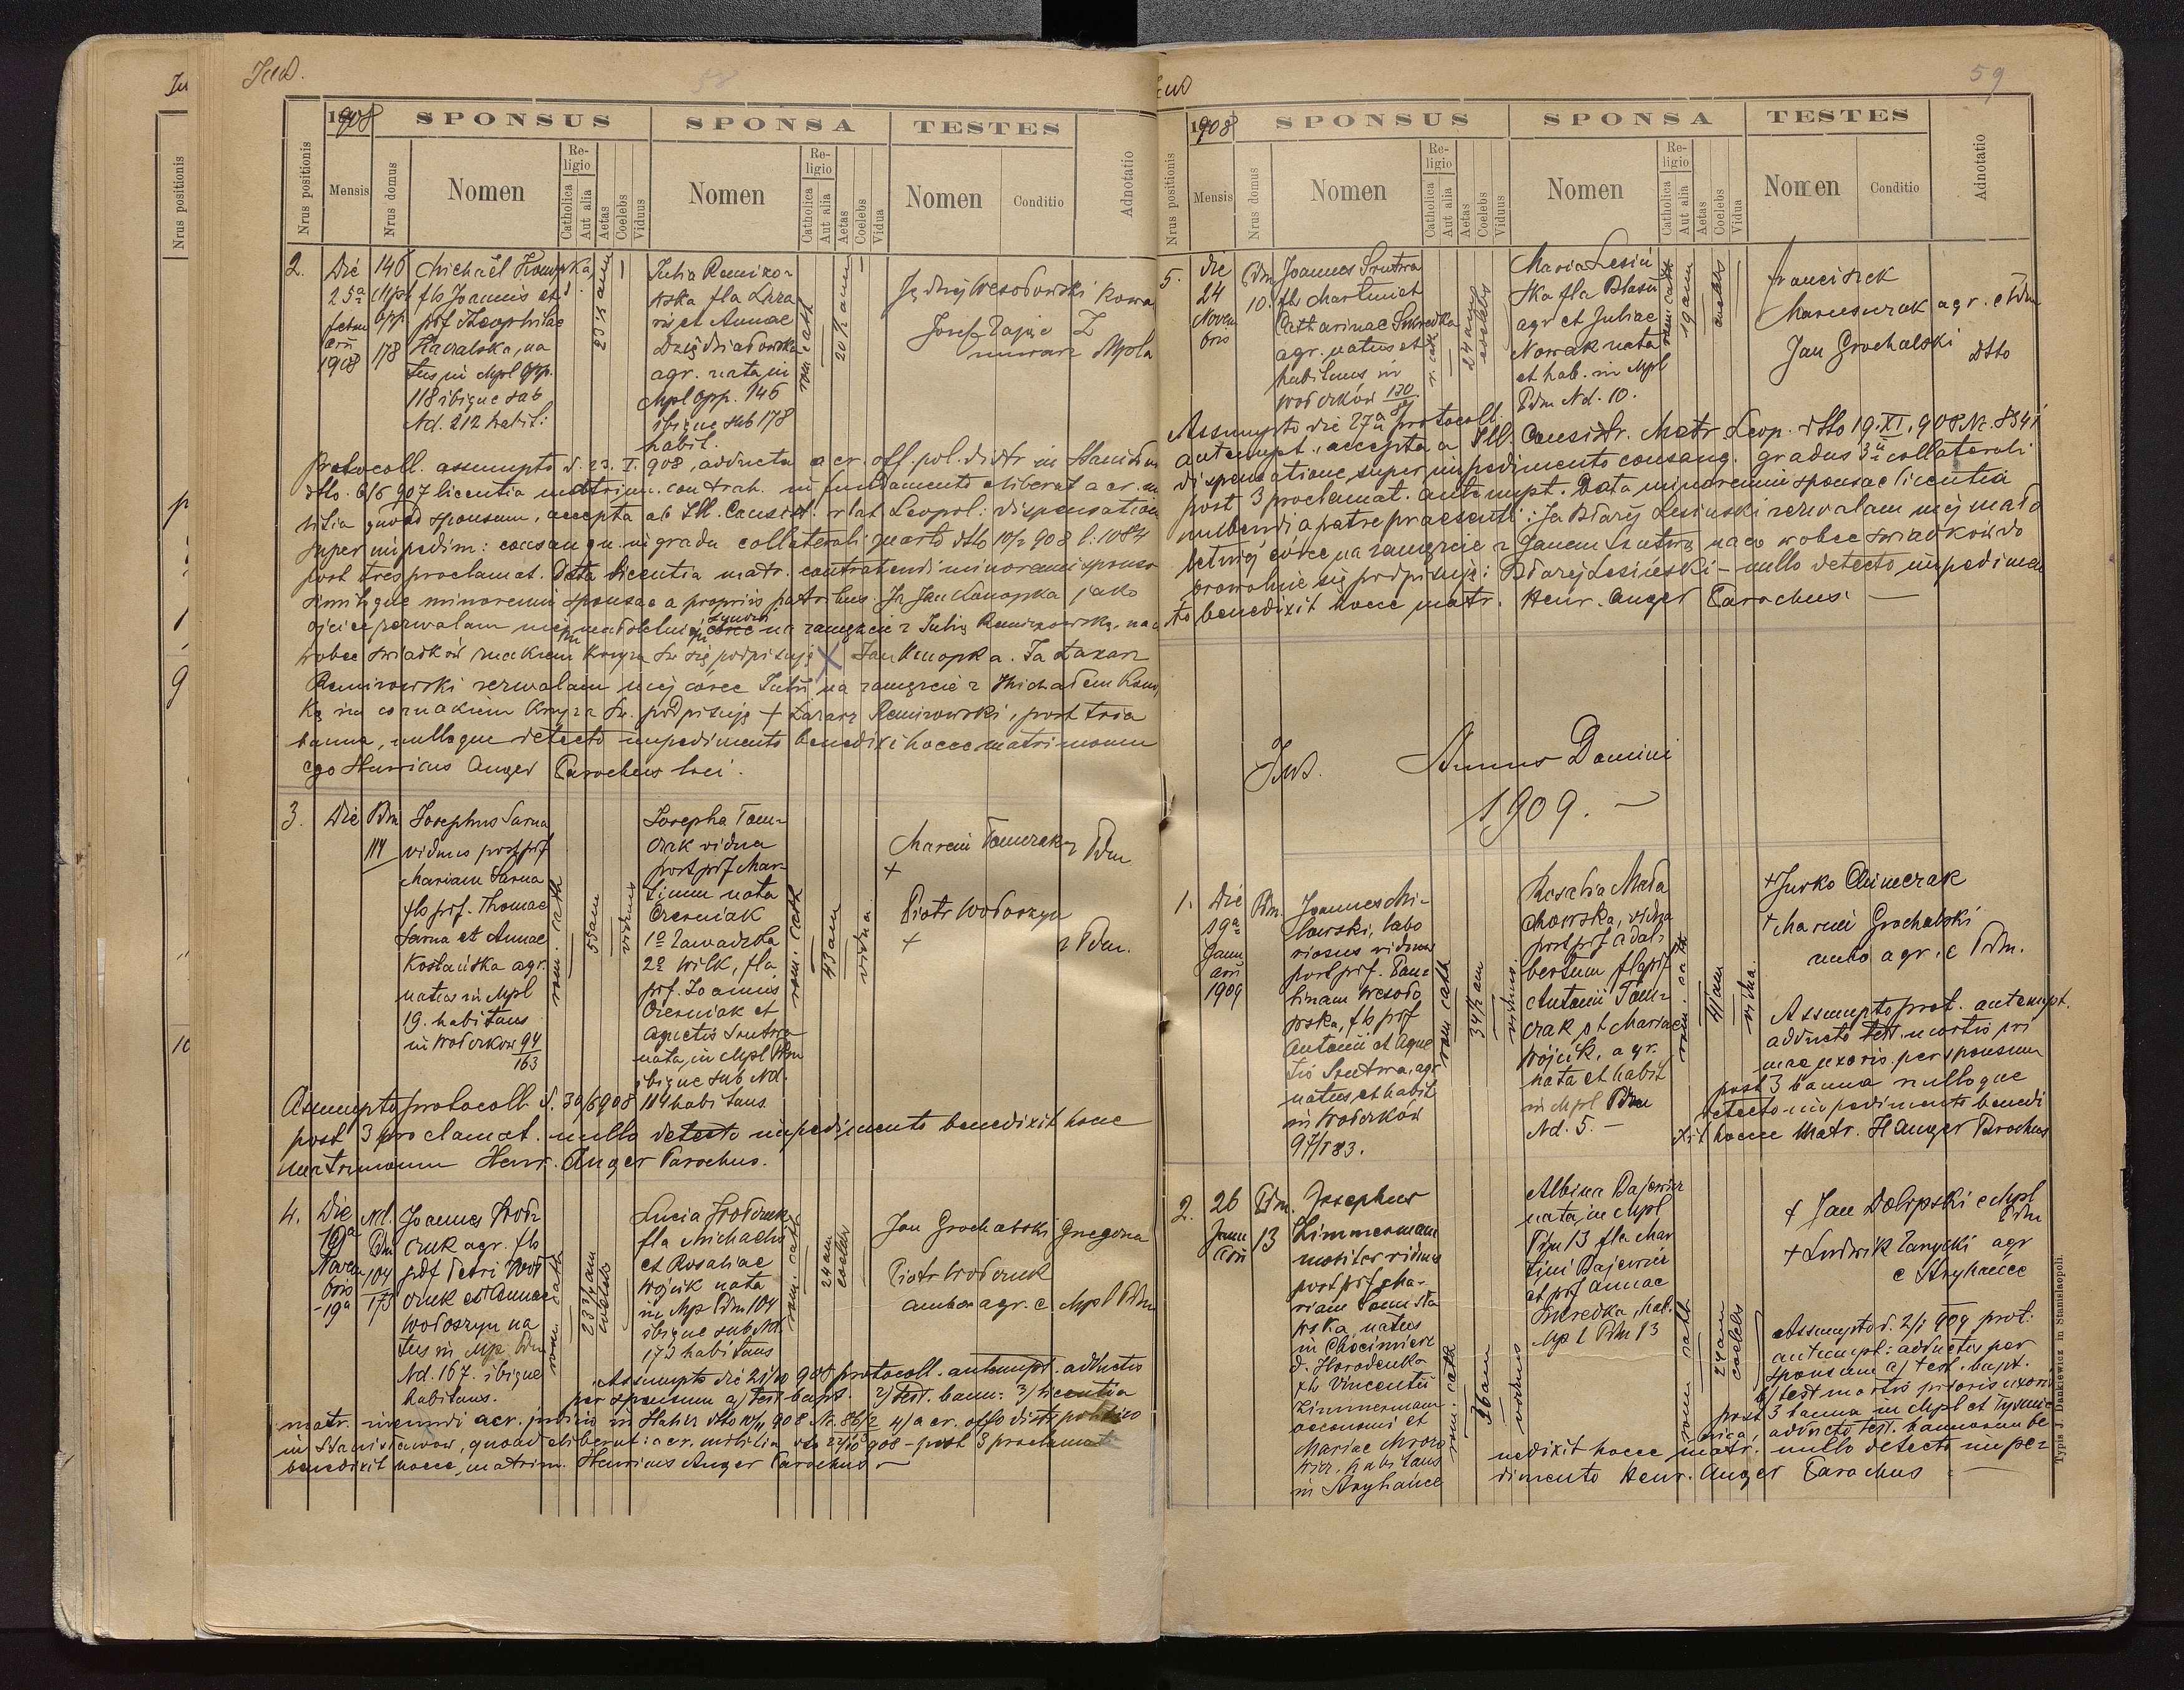 Ind.
58
1908
SPONSUS
SPONSA
TESTES
Nrus positionis
Mensis
Nrus domus
Nomen
Religio
Catholica
Aut alia
Aetas
Coelebs
Viduus
Nomen
Religio
Catholica
Aut alia
Aetas
Coelebs
Vidua
Nomen
Conditio
Adnotatio
2.
Die
25ª
1908
146
178
Michaël Konopka
fls Joannis et
prf Theophilae
Kawalska, na
tus in Mpl Opp.
118 ibique sub
Nd. 212 habit:
Julia Remizo-
wska fla Laza
ri et Annae
agr. nata in
Mpl Opp. 146
ibique sub 178
habit.
rom. cath
Jędrzej Wesołowski
Josef Zając
Protocoll. assumpto d. 23. I. 908, adducta a cr. off. pol. distr in
dtto. 6/6 907 licentia matrim. contrah. in fundamento eliberat a cr. mi
litia quoad sponsum, accepta ab Ill. Consist. r lat Leopol: dispensation
super impedim: consangu. in gradu collaterali quarto dtto 10/2 908 l: 1084
post tres proclamat. Data licentia matr. contrahendi minorenni sponso
similique minorenni sponsae a propriis patribus. Ja Jan Konopka jako
ojciec zezwalam na zamęzcie z Julią Remizowską, na
wobec świadków znakiem krzyża św się podpisuję X Jan Konopka. Ja Łazarz
Remizowski zezwalam mej córce Julii na zamęzcie z Michałem Konop
ką na co znakiem krzyża św. podpisuję + Łazarz Remizowski, post tria
banna, nulloque detecto impedimento benedixi hocce matrimonium
ego Henricus Anger Parochus loci.
3.
Die
Pdm
114
Josephus Sarna
viduus post prf
Mariam Sarna
fls prf. Thomae
Sarna et Annae
Kostańska agr.
natus in Mpl
19. habitans
in Wołczkow 94
163
rom. cath
55 am
viduus
Josepha Tom-
czak vidua
post prf Mar-
tinum nata
Czerniak
1º Zawadzka
2º Wilk, fla
prf. Joannis
Czerniak et
Agnetis Szutwa
nata in Mpl Pdm
ibique sub Nd.
114 habitans
rom. cath
43 am
vidua.
Marcin Tomczak z Pdm
+
Piotr Wołoszyn
+
z Pdm.
Assumpto protocoll d. 30/6 908
post 3 proclamat. nullo detecto impedimento benedixit hance
matrimonium Henr. Anger Parochus.
4.
Die
19ª
Novem
bris
-19ª
Nd.
Pdm
104
173
Joannes Wołcz
czuk agr. fls
prf Petri Woł
czuk et Annae
Wołoszyn na
tus in Mp Pdm
Nd. 167. ibique
habitans.
rom. cath
23 3/4 am
coelebs
Lucia Wołczuk
fla Michaelis
et Rosaliae
Wójcik nata
in Mp Pdm 104
ibique sub Nd.
173 habitans
rom. cath
24 am
coelebs
Jan Grochalski Gregoria
Piotr Wołczuk
ambo agr. e Mpl Pdm
Assumpto die 21/10 908 protocoll. antenupt. adductis
per sponsum a) test bapt. 2) test. bann: 3) licentia
matr. ineundi a cr. judicio in Halicz dtto 10/11 908 Nr. 86/2 4) a cr. offo distr politico
in Stanisławow, quoad eliberat: a cr. militia dtto 22/10 908 - post 3 proclamat
benedixit hocce matrim. Henricus Anger Parochus
59
1908
SPONSUS
SPONSA
TESTES
Nrus positionis
Mensis
Nrus domus
Nomen
Religio
Catholica
Aut alia
Aetas
Coelebs
Viduus
Nomen
Religio
Catholica
Aut alia
Aetas
Coelebs
Vidua
Nomen
Conditio
Adnotatio
5.
die
24
Novem
bris
Pdm
10.
Joannes Szutwa
fls Martini et
Catharinae Skredka
agr. natus et
habitans in
Wołczków 130
r. cath
24 am
coelebs
Maria Lesiń
ska fla Blasii
agr et Juliae
Nowak nata
et hab. in Mpl
Pdm Nd. 10.
rom cath
19 am
coelebs
Franciszek
agr. e Pdm
Jan Grochalski
dtto
Assumpto die 27ª protocoll.
antenupt., accepta a Ill. Consistr. Metr. Leop. dtto 19. XI. 908 Nr. 8341
dispensatione super impedimento consang. gradus 3ii collaterali
post 3 proclamat. antenupt. Data minorenni sponsae licentia
nubendi a patre praesenti: Ja Błażej Lesiński zezwalam mej mało
letniej córce na zamęzcie z Janem Szutwą na co wobec świadków do
browolnie się podpisuję: Błażej Lesiński - nullo detecto impedimen
to benedixit hocce matr. Henr. Anger Parochus.
Ind.
Annus Domini
1909.
1.
Die
19ª
Janu
arii
1909
Pdm.
Joannes Mi-
lawski, labo
riosus viduus
post prf. Pau-
linam Wesoło
wska, fls prf
Antonii et Agne
tis Szutwa, agr
natus et habit
in Wołczków
97/183.
rom. cath
34 1/2 am
viduus
Rosalia Mała
chowska, vidua
post prf Adal-
bertum fla prf
Antonii Tom-
czak et Mariae
Wójcik, agr.
nata et habit
in Mpl Pdm
Nd. 5. -
rom. cath
41 am
vidua.
+ Jurko Chimczak
+ Marcin Grochalski
ambo agr. e Pdm.
Assumpto prot. antenupt.
adducto test. mortis pri
mae uxoris per sponsum
post 3 banna nulloque
detecto impedimento benedi
xit hocce Matr. H Anger Parochus
2.
26
Janu
arii
Pdm.
13
Josephus
Zimmermann
viduus
post prf Ma-
riam
wska natus
in Chocimierz
d. Horodenka
fls Vincentii
Zimmermann
oeconomi et
Mariae Mroro
wicz, habitans
in Stryhańce
rom. cath
36 am
viduus
Albina Bajewicz
nata in Mpl
Pdm 13 fla Mar
tini Bajewicz
et prf Annae
Skredka, hab.
Mpl Pdm 13
rom cath
24 am
coelebs
+ Jan Dolipski e Mpl
Pdm
+ Ludwik Zarycki agr
e Stryhańce
Assumpto d. 2/1 909 prot.
antenupt: adductis per
sponsum a) test. bapt.
b) test mortis prioris uxoris
post 3 banna in Mpl et Tyśmie
nica, adducto test. bannorum be
nedixit hocce matr. nullo detecto impe-
dimento Henr. Anger Parochus
Typis J. Dankiewicz in Stanislaopoli.
Nrus positionis
9
10